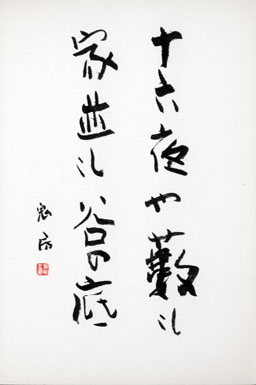 十六夜や藪も
家並も谷の底